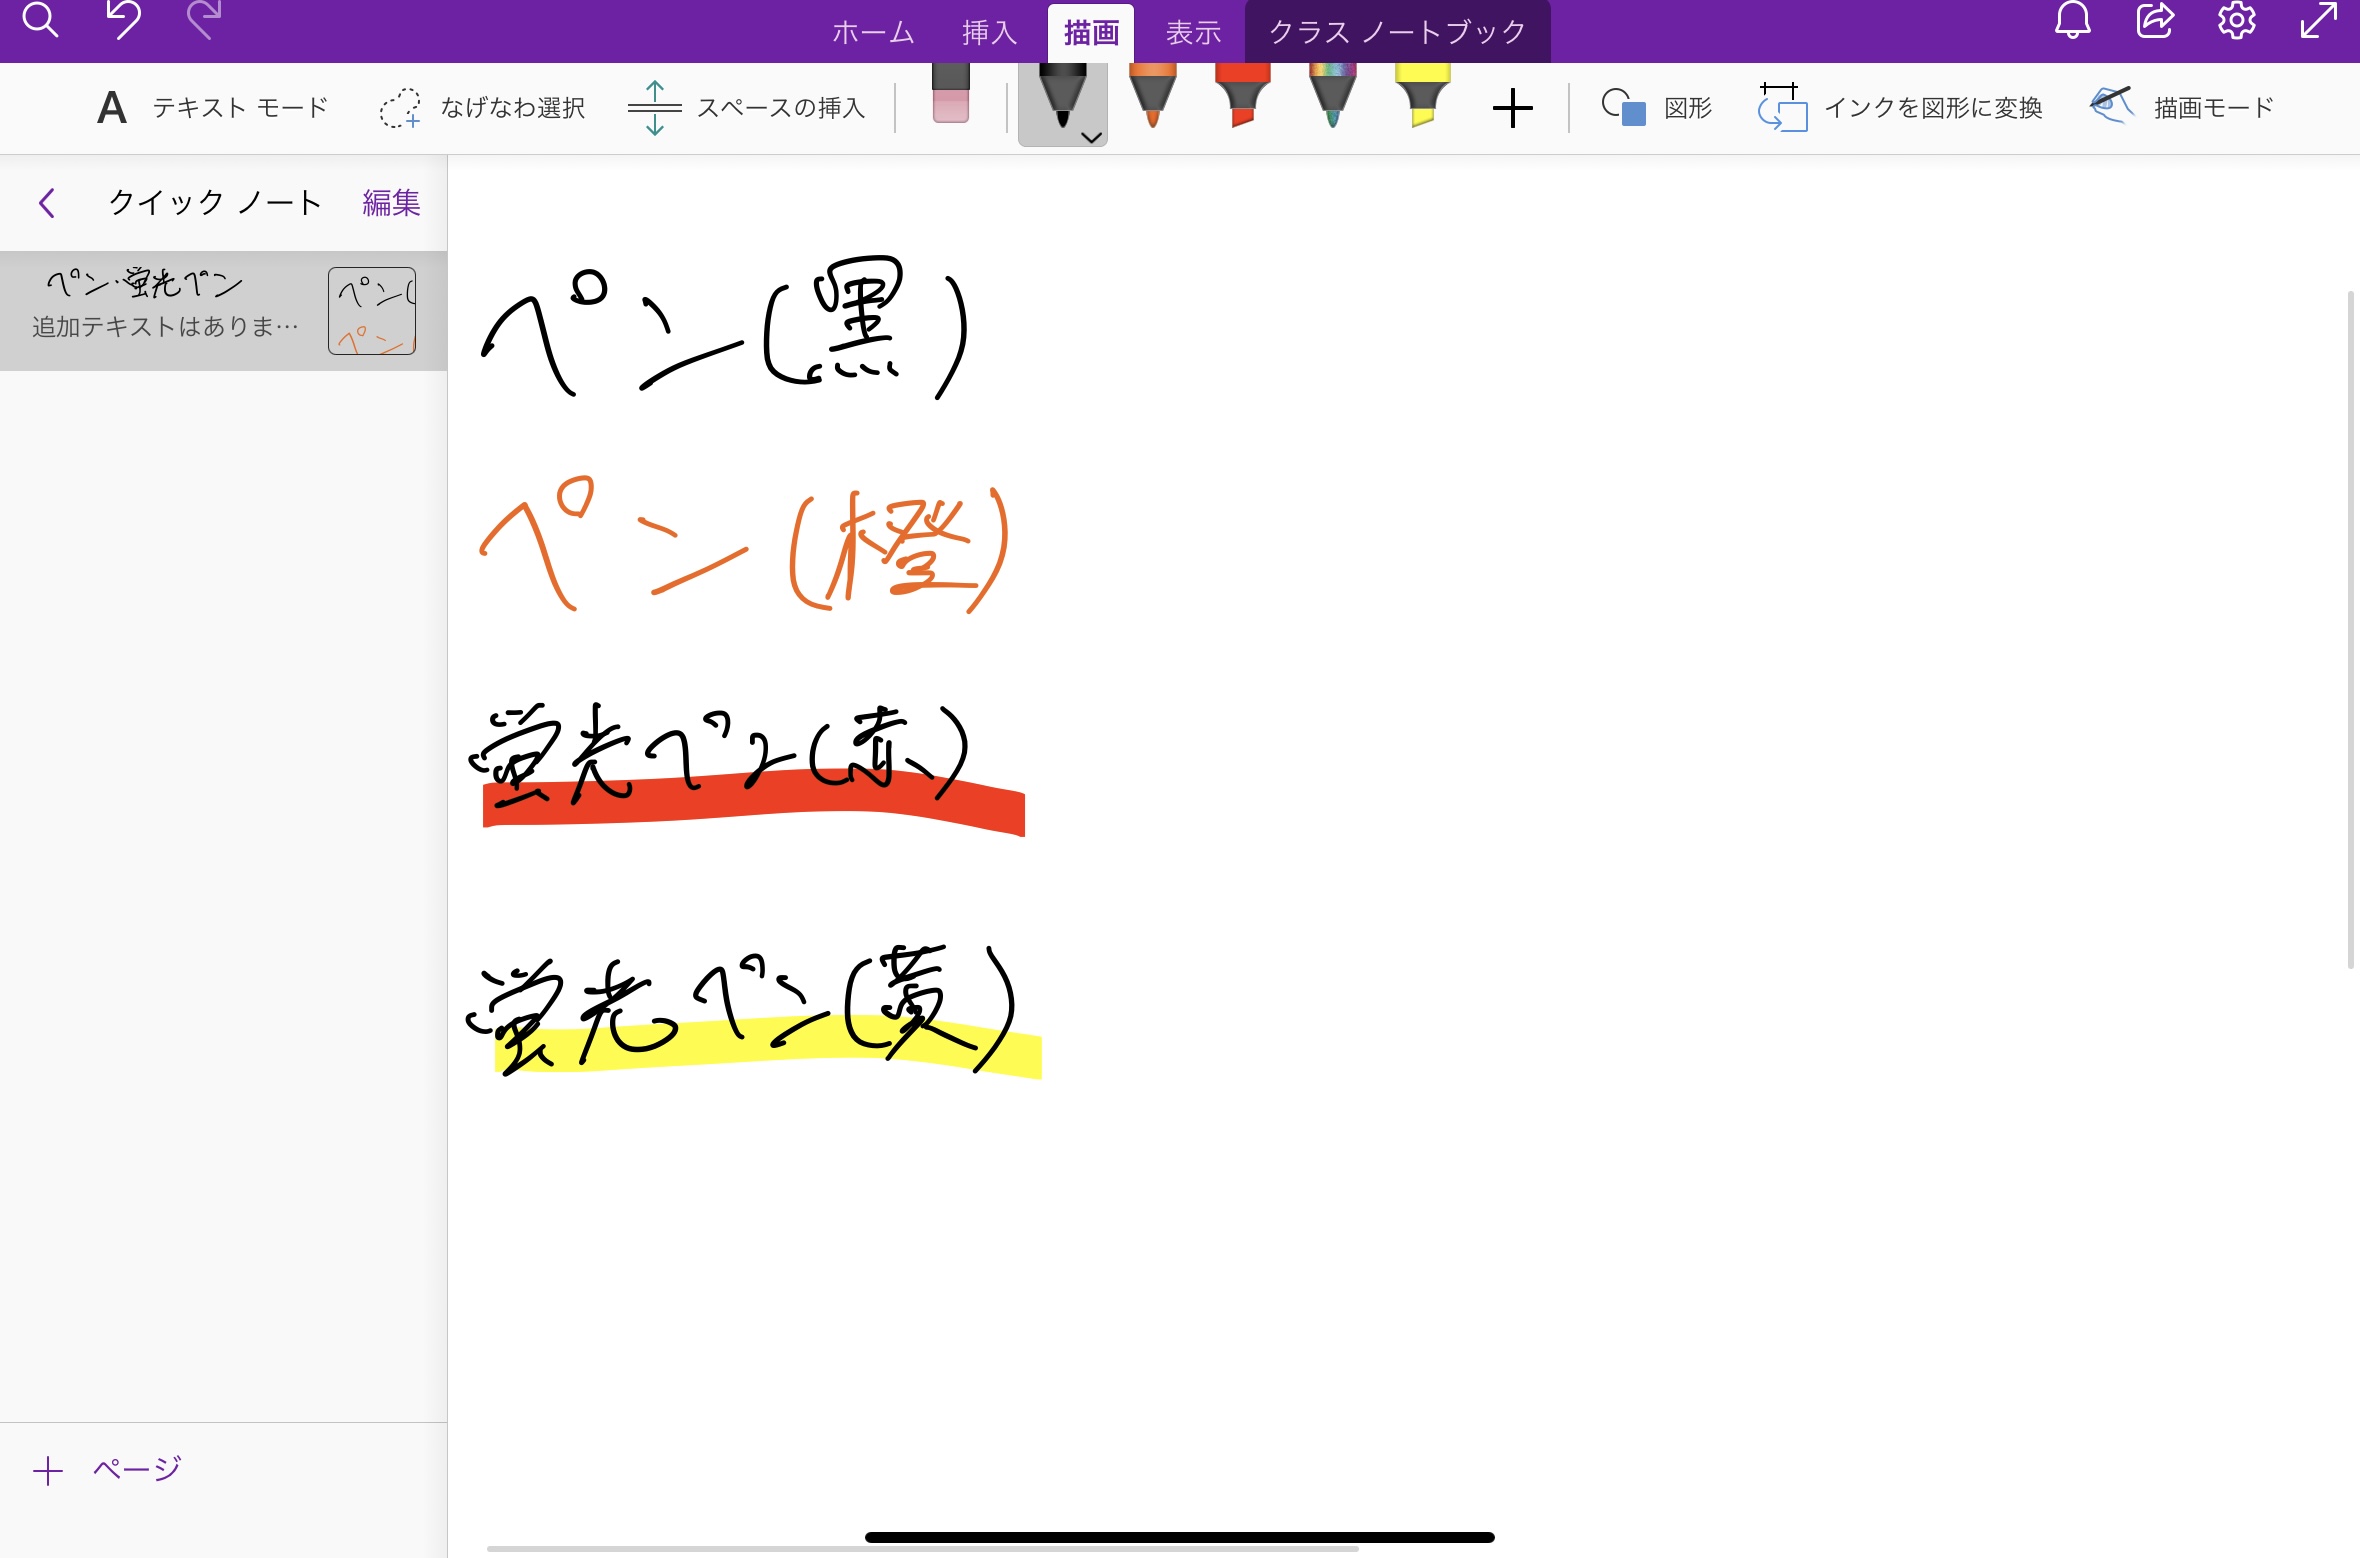 ホーム 挿入 描画 表示 クラス ノートブック
A テキスト モード なげなわ選択 スペースの挿入 図形 インクを図形に変換 描画モード
クイック ノート 編集
ペン・蛍光ペン
追加テキストはありま…
ペン(
ペン(
ペン(黒)
ペン(橙)
蛍光ペン(赤)
蛍光ペン(黄)
ページ